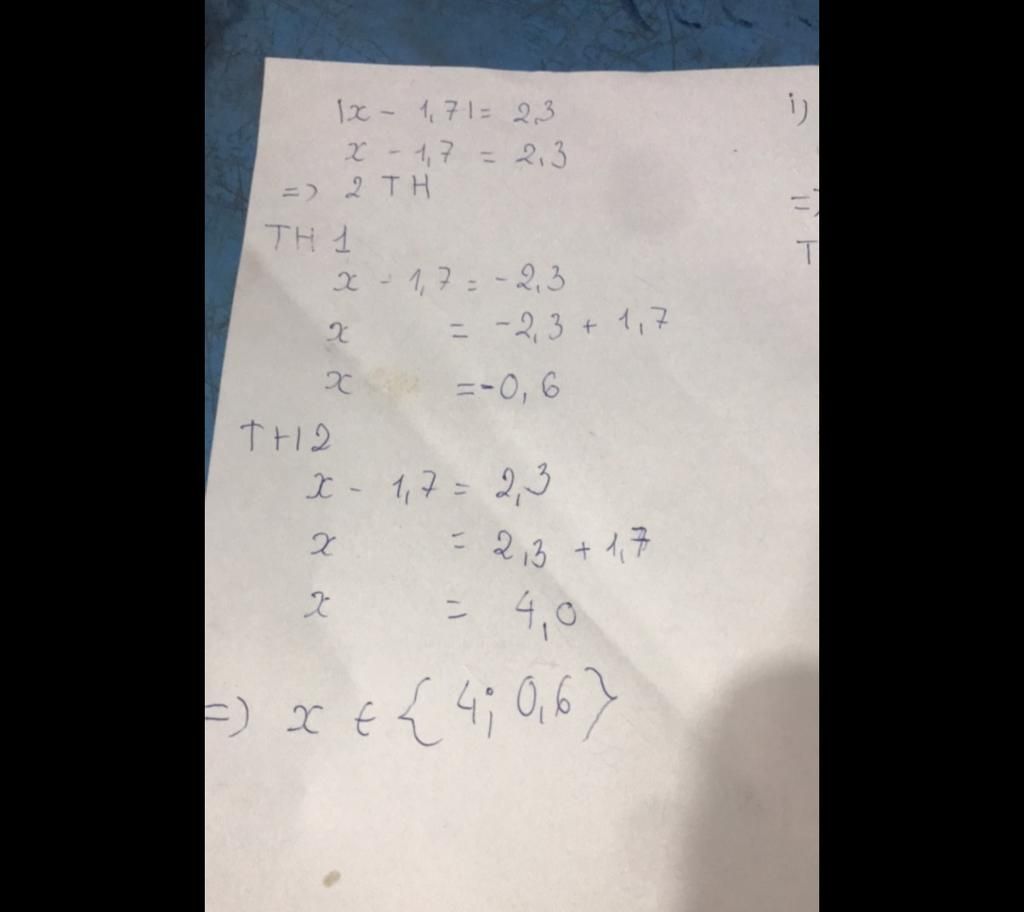 |x - 1,7| = 2,3
x - 1,7 = 2,3
=> 2 TH
TH 1
x - 1,7 = -2,3
x = -2,3 + 1,7
x = -0,6
TH 2
x - 1,7 = 2,3
x = 2,3 + 1,7
x = 4,0
=> x ∈ { 4; 0,6 }
i)
=>
T